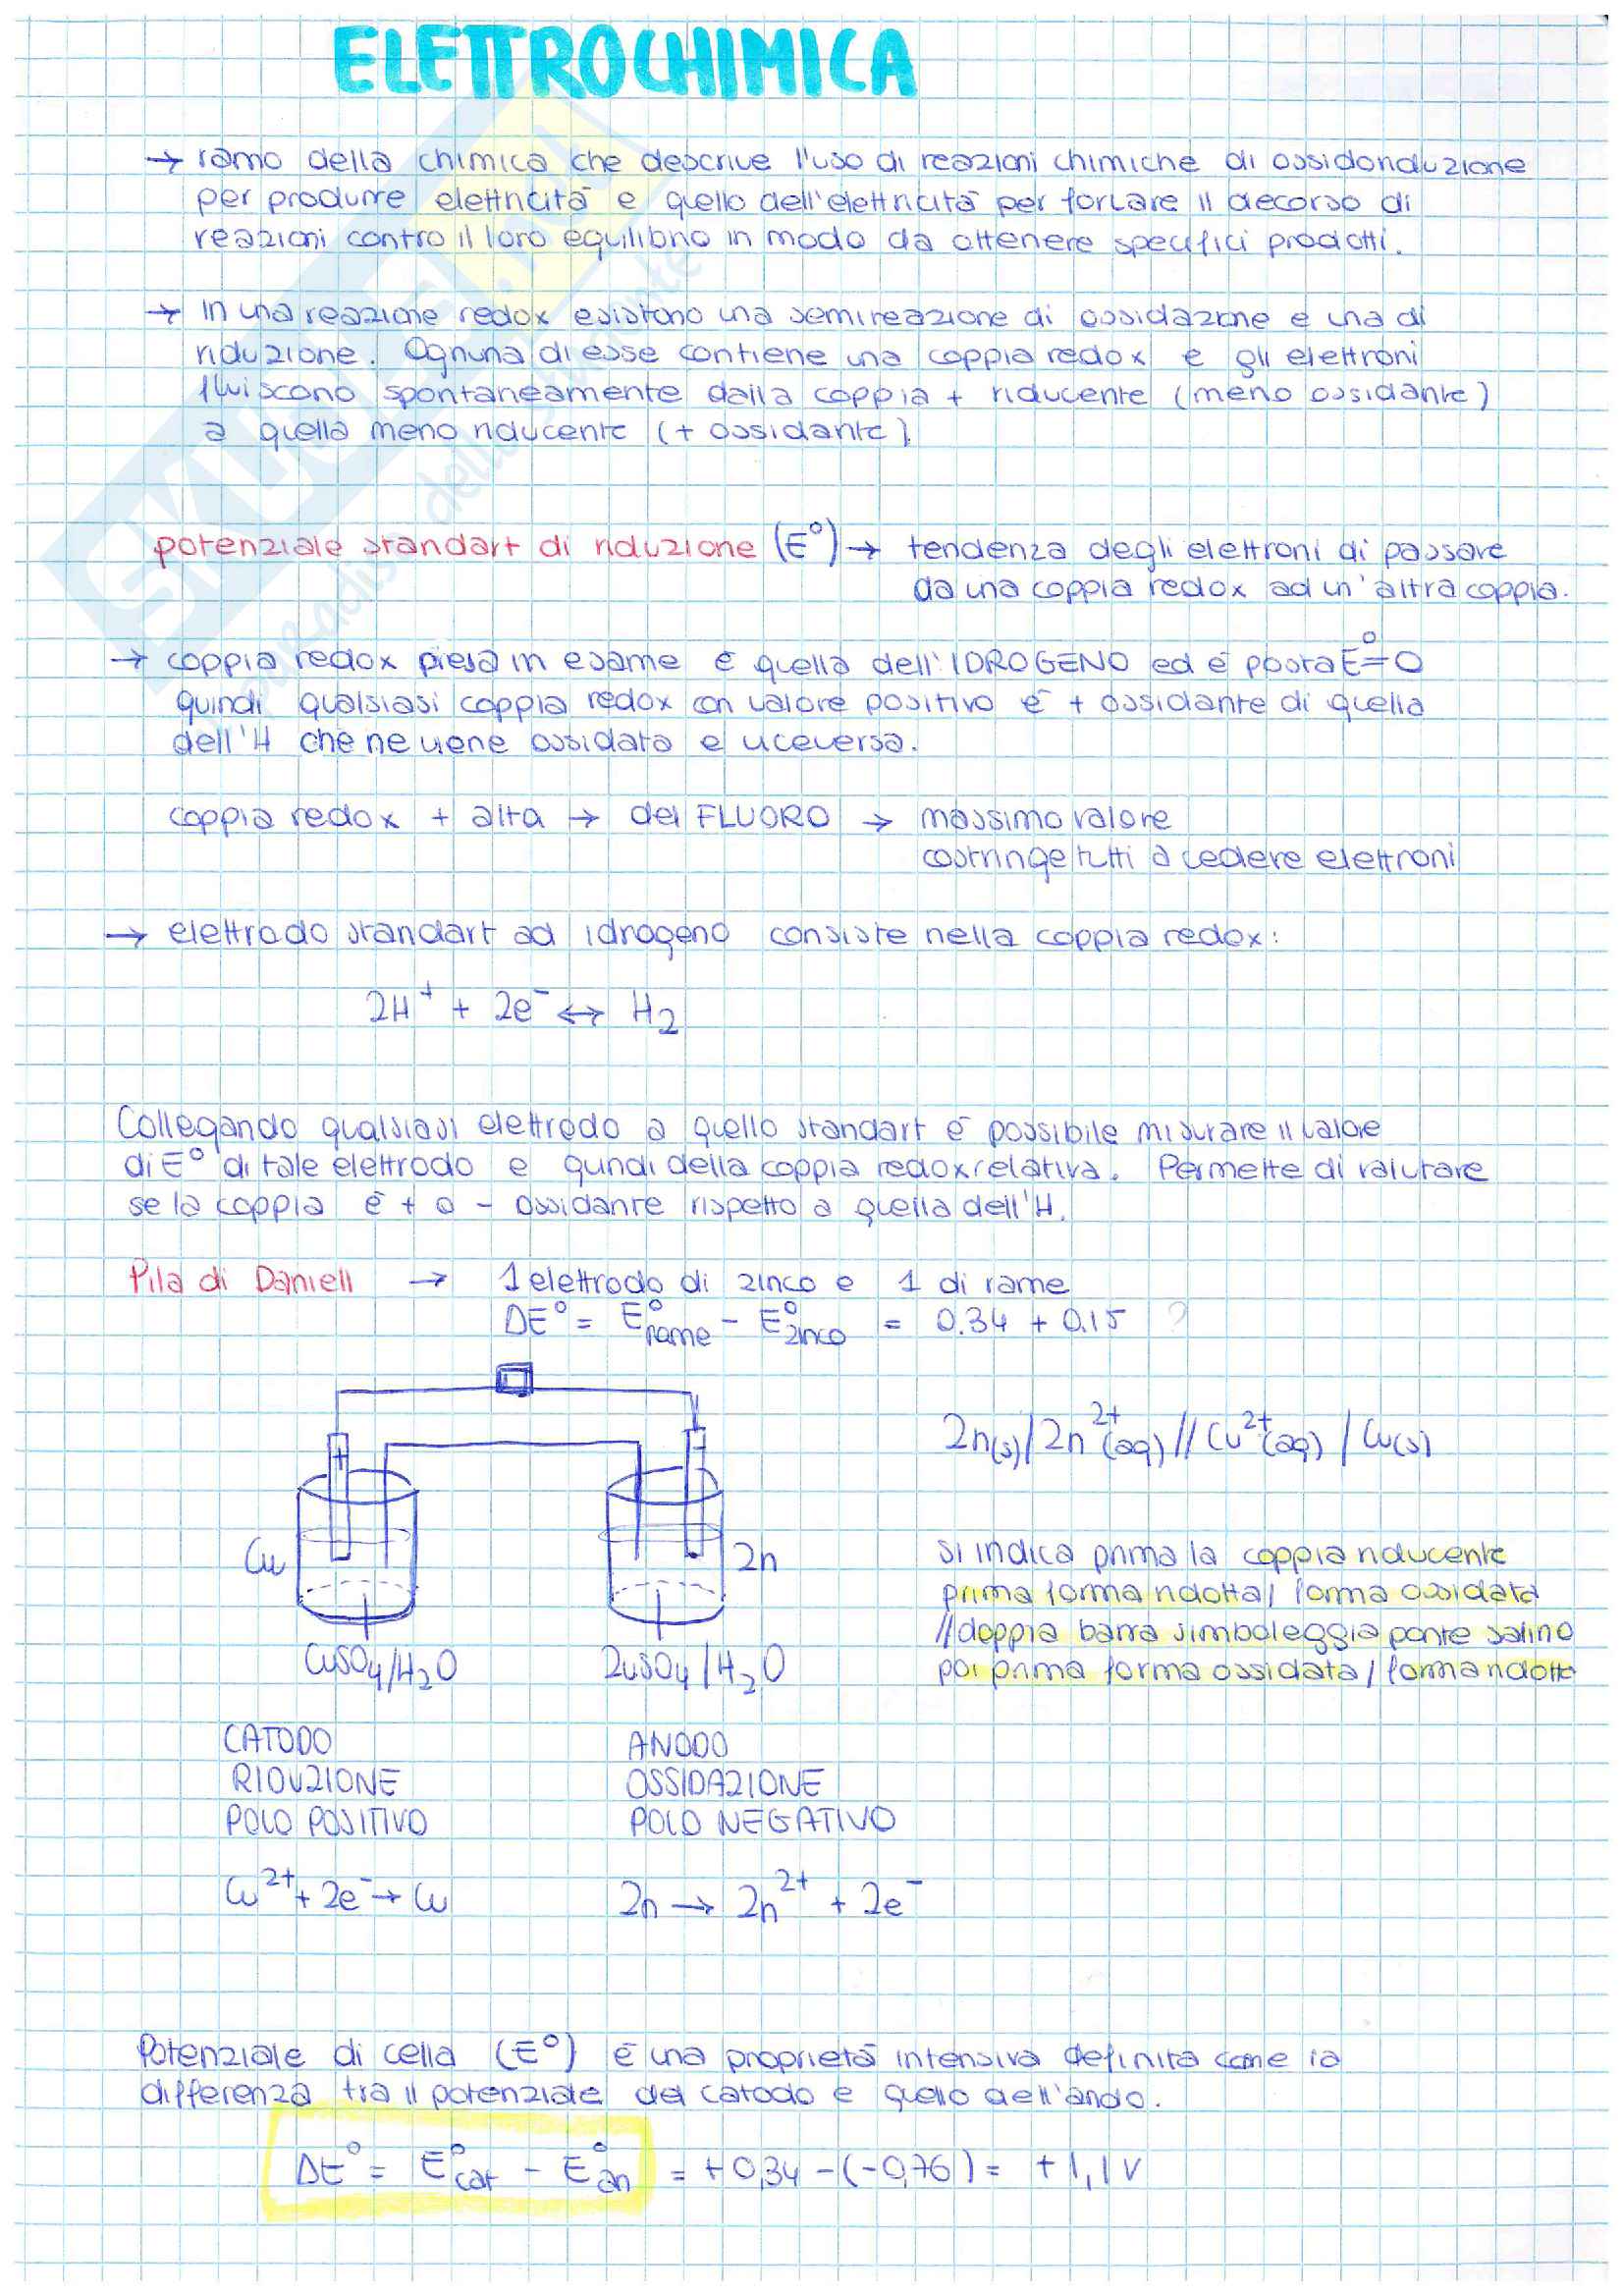 ELETTROCHIMICA
→ ramo della chimica che descrive l'uso di reazioni chimiche di ossidoriduzione
per produrre elettricità e quello dell'elettricità per forzare il decorso di
reazioni contro il loro equilibrio in modo da ottenere specifici prodotti.
→ in una reazione redox esistono una semireazione di ossidazione e una di
riduzione. Ognuna di esse contiene una coppia redox e gli elettroni
fluiscono spontaneamente dalla coppia + riducente (meno ossidante)
a quella meno riducente (+ ossidante).
potenziale standart di riduzione (E°) → tendenza degli elettroni di passare
da una coppia redox ad un'altra coppia.
→ coppia redox presa in esame è quella dell'IDROGENO ed è posta E°=0
quindi qualsiasi coppia redox con valore positivo è + ossidante di quella
dell'H che ne viene ossidata e viceversa.
coppia redox + alta → del FLUORO → massimo valore
costringe tutti a cedere elettroni
→ elettrodo standart ad idrogeno consiste nella coppia redox:
2H⁺ + 2e⁻ ↔ H₂
Collegando qualsiasi elettrodo a quello standart è possibile misurare il valore
di E° di tale elettrodo e quindi della coppia redox relativa. Permette di valutare
se la coppia è + o - ossidante rispetto a quella dell'H.
Pila di Daniell → 1 elettrodo di zinco e 1 di rame
ΔE° = E°rame - E°zinco = 0.34 + 0.15 ?
+ -
Zn(s)/Zn²⁺(aq)//Cu²⁺(aq)/Cu(s)
Cu Zn
si indica prima la coppia riducente
prima forma ridotta/ forma ossidata
//doppia barra simboleggia ponte salino
poi prima forma ossidata/ forma ridotta
CuSO₄/H₂O ZuSO₄/H₂O
CATODO ANODO
RIDUZIONE OSSIDAZIONE
POLO POSITIVO POLO NEGATIVO
Cu²⁺ + 2e⁻ → Cu Zn → Zn²⁺ + 2e⁻
Potenziale di cella (E°) è una proprietà intensiva definita come la
differenza tra il potenziale del catodo e quello dell'ando.
ΔE° = E°cat - E°an = +0,34 -(-0,76) = +1,1 V